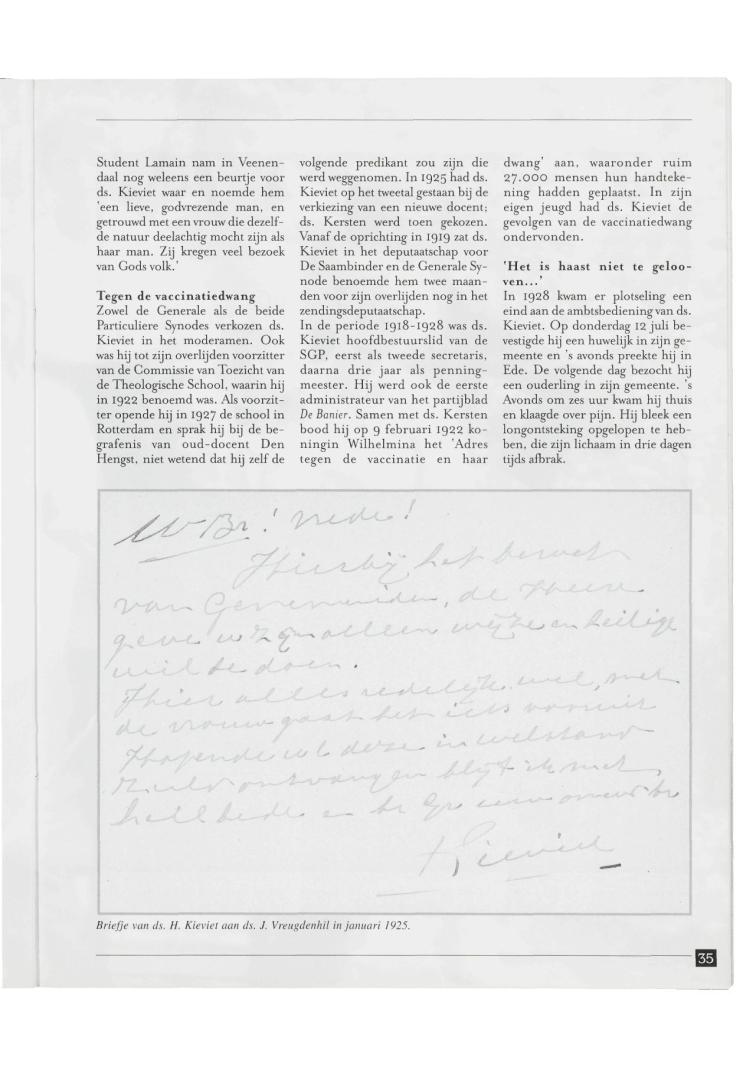 Student Lamain nam in Veenen-
daal nog weleens een beurtje voor
ds. Kieviet waar en noemde hem
'een lieve, godvrezende man, en
getrouwd met een vrouw die dezelf-
de natuur deelachtig mocht zijn als
haar man. Zij kregen veel bezoek
van Gods volk.'
Tegen de vaccinatiedwang
Zowel de Generale als de beide
Particuliere Synodes verkozen ds.
Kieviet in het moderamen. Ook
was hij tot zijn overlijden voorzitter
van de Commissie van Toezicht van
de Theologische School, waarin hij
in 1922 benoemd was. Als voorzit-
ter opende hij in 1927 de school in
Rotterdam en sprak hij bij de be-
grafenis van oud-docent Den
Hengst, niet wetend dat hij zelf de
volgende predikant zou zijn die
werd weggenomen. In 1925 had ds.
Kieviet op het tweetal gestaan bij de
verkiezing van een nieuwe docent;
ds. Kersten werd toen gekozen.
Vanaf de oprichting in 1919 zat ds.
Kieviet in het deputaatschap voor
De Saambinder en de Generale Sy-
node benoemde hem twee maan-
den voor zijn overlijden nog in het
zendingsdeputaatschap.
In de periode 1918-1928 was ds.
Kieviet hoofdbestuurslid van de
SGP, eerst als tweede secretaris,
daarna drie jaar als penning-
meester. Hij werd ook de eerste
administrateur van het partijblad
De Banier. Samen met ds. Kersten
bood hij op 9 februari 1922 ko-
ningin Wilhelmina het 'Adres
tegen de vaccinatie en haar
dwang' aan, waaronder ruim
27.000 mensen hun handteke-
ning hadden geplaatst. In zijn
eigen jeugd had ds. Kieviet de
gevolgen van de vaccinatiedwang
ondervonden.
'Het is haast niet te geloo-
ven...'
In 1928 kwam er plotseling een
eind aan de ambtsbediening van ds.
Kieviet. Op donderdag 12 juli be-
vestigde hij een huwelijk in zijn ge-
meente en 's avonds preekte hij in
Ede. De volgende dag bezocht hij
een ouderling in zijn gemeente. 's
Avonds om zes uur kwam hij thuis
en klaagde over pijn. Hij bleek een
longontsteking opgelopen te heb-
ben, die zijn lichaam in drie dagen
tijds afbrak.
W Br! vrede!
Hierbij het beroep
van Genemuiden, de Heere
geve u zijn alleen wijze en heilige
wil te doen.
Hier alles redelijk wel, met
de vrouw gaat het iets vooruit
Hopende u deze in welstand
zult ontvangen blijf ik met
heilbede en br gr uw
Kieviet
Briefje van ds. H. Kieviet aan ds. J. Vreugdenhil in januari 1925.
35